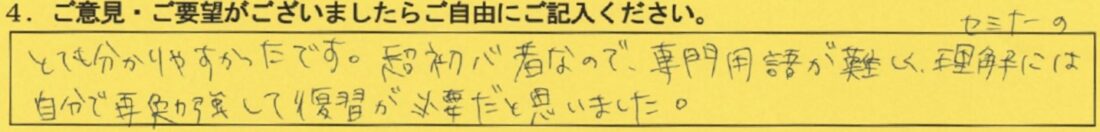 4. ご意見・ご要望がございましたらご自由にご記入ください。
セミナーの
とても分かりやすかったです。超初心者なので、専門用語が難しく、理解には
自分で再勉強して復習が必要だと思いました。